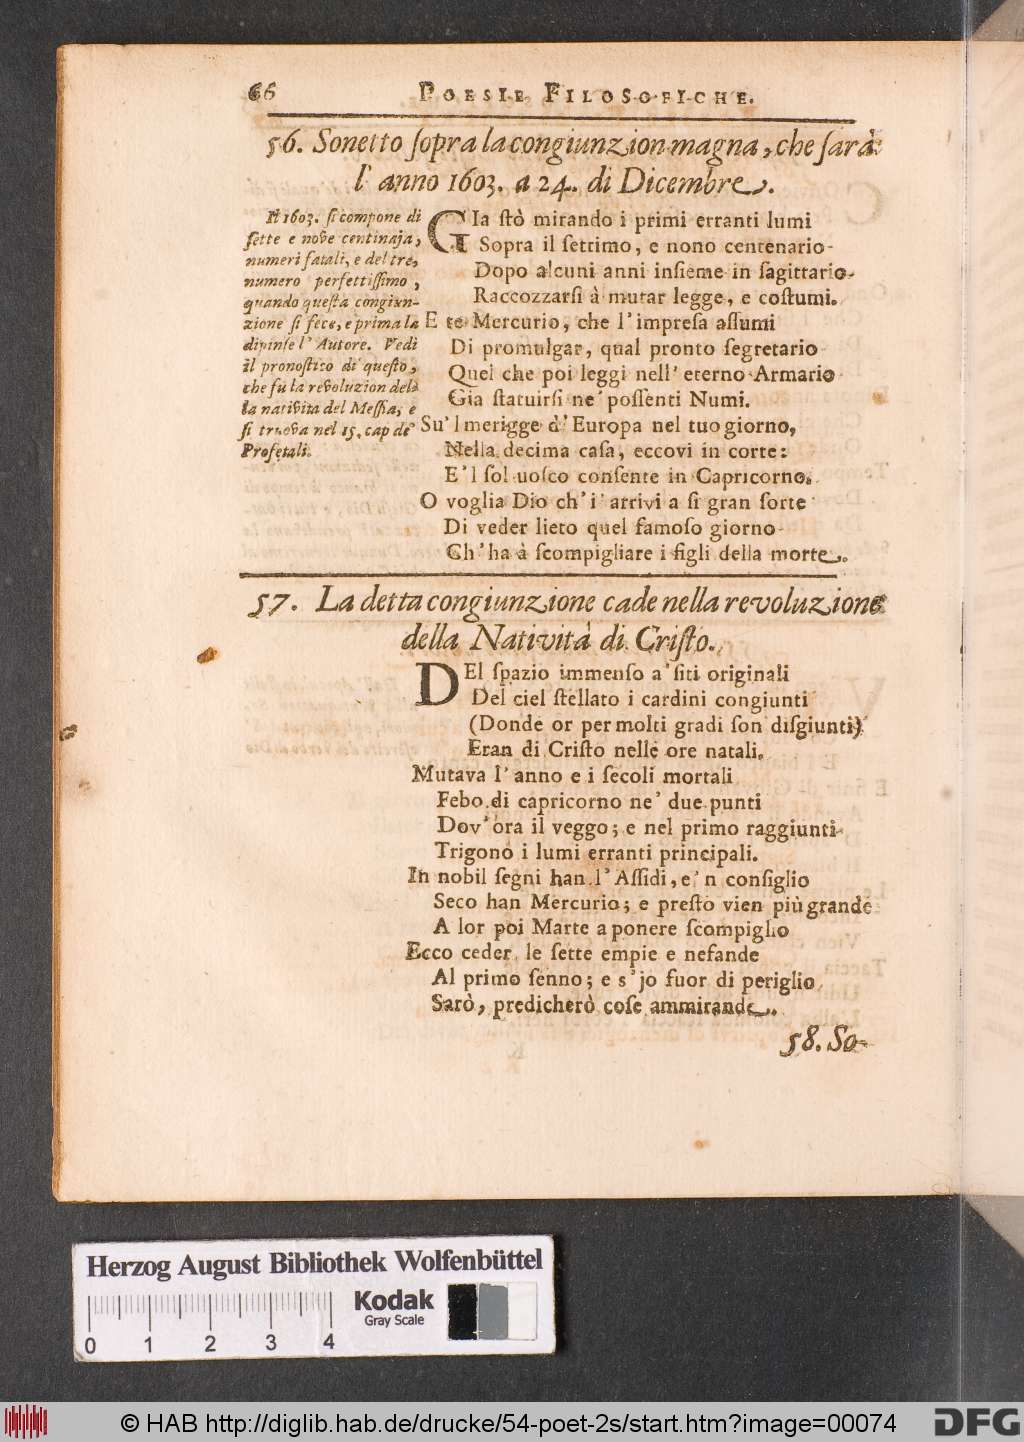 66 POESIE FILOSOFICHE.
56. Sonetto sopra la congiunzion magna, che sarà
l' anno 1603. a 24. di Dicembre.
Il 1603. si compone di
sette e nove centinaja,
numeri fatali, e del tre,
numero perfettissimo,
quando questa congiun-
zione si fece, e prima la
dipinse l' Autore. Vedi
il pronostico di questo,
che fu la revoluzion del
la nativita del Messia, e
si truova nel 15. cap de'
Profetali.
GIa stò mirando i primi erranti lumi
Sopra il settimo, e nono centenario
Dopo alcuni anni insieme in sagittario
Raccozzarsi à mutar legge, e costumi.
E te Mercurio, che l' impresa assumi
Di promulgar, qual pronto segretario
Quel che poi leggi nell' eterno Armario
Gia statuirsi ne' possenti Numi.
Su 'l merigge d' Europa nel tuo giorno,
Nella decima casa, eccovi in corte:
E 'l sol vosco consente in Capricorno.
O voglia Dio ch' i' arrivi a si gran sorte
Di veder lieto quel famoso giorno
Ch' ha à scompigliare i figli della morte.
57. La detta congiunzione cade nella revoluzione
della Natività di Cristo.
DEl spazio immenso a' siti originali
Del ciel stellato i cardini congiunti
(Donde or per molti gradi son disgiunti)
Eran di Cristo nelle ore natali.
Mutava l' anno e i secoli mortali
Febo di capricorno ne' due punti
Dov' ora il veggo; e nel primo raggiunti
Trigono i lumi erranti principali.
In nobil segni han l' Assidi, e 'n consiglio
Seco han Mercurio; e presto vien più grande
A lor poi Marte a ponere scompiglio
Ecco ceder le sette empie e nefande
Al primo senno; e s' jo fuor di periglio
Sarò, predicherò cose ammirande.
58. So-
Herzog August Bibliothek Wolfenbüttel
Kodak
Gray Scale
0 1 2 3 4
© HAB http://diglib.hab.de/drucke/54-poet-2s/start.htm?image=00074
DFG